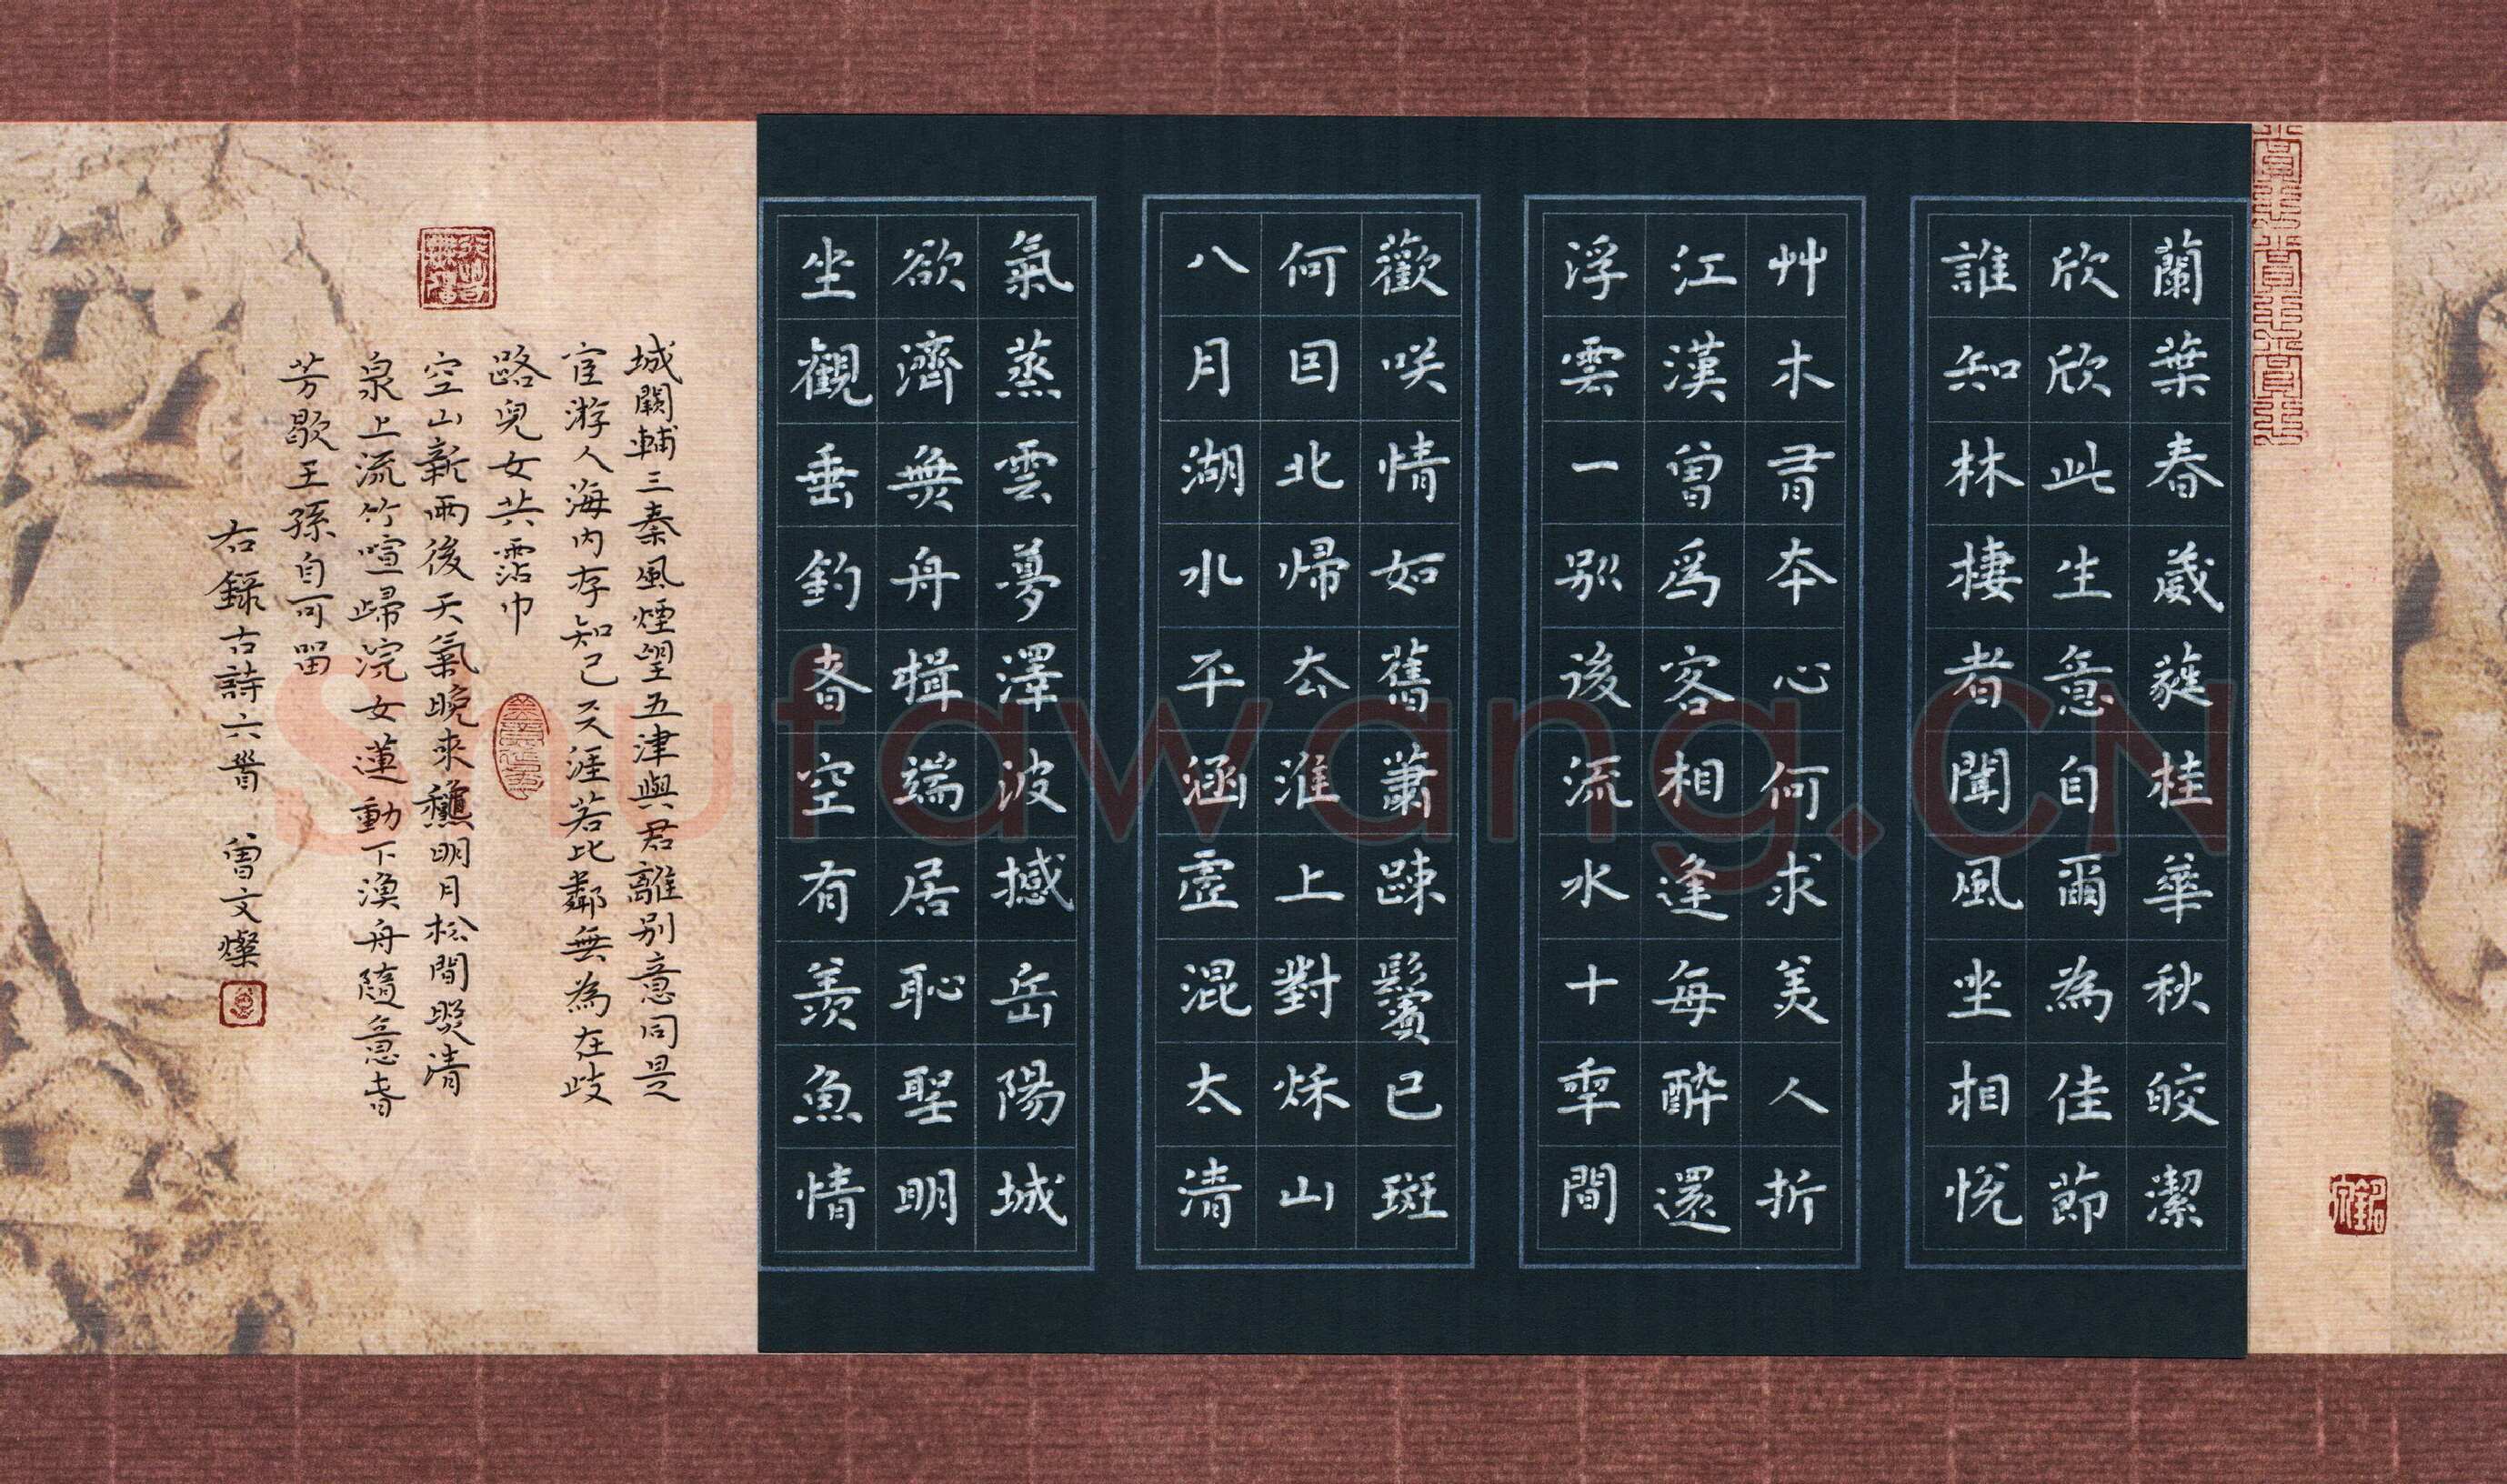 蘭葉春葳蕤桂華秋皎潔
欣欣此生意自爾為佳節
誰知林棲者聞風坐相悅
艸木有本心何求美人折
江漢曾爲客相逢每醉還
浮雲一别後流水十秊間
歡咲情如舊蕭踈鬢已斑
何囙北帰厺淮上對秌山
八月湖水平涵虛混太清
氣蒸雲夢澤波撼岳陽城
欲濟無舟楫端居恥聖明
坐觀垂釣者空有羨魚情
城闕輔三秦風煙望五津與君離别意同是
宦游人海內存知己天涯若比鄰無為在歧
路兒女共霑巾
空山新雨後天氣晚來龝明月松間照清
泉上流竹喧歸浣女蓮動下漁舟隨意春
芳歇王孫自可留
右録古詩六首 曾文燦
Shufawang.CN